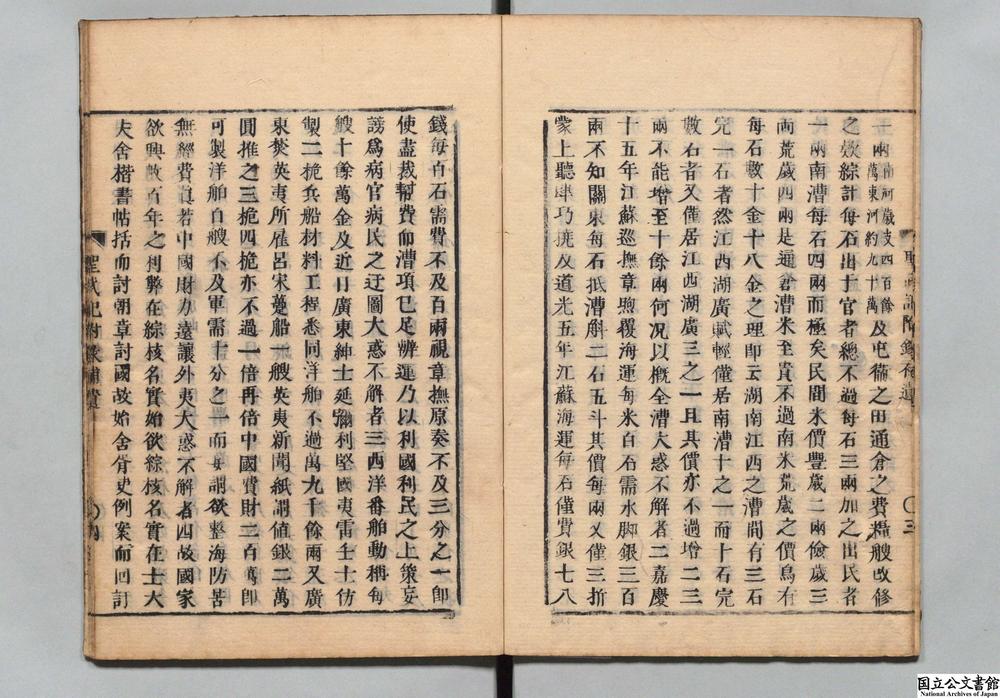 兩南河歲支四百餘萬東河約九十萬及屯衞之田通倉之費糧艘改修
之數綜計每石出于官者總不過每石三兩加之出民者
一兩南漕每石四兩而極矣民間米價豐歲二兩儉歲三
兩荒歲四兩是通倉漕米至貴不過南米荒歲之價烏有
每石數十金十八金之理卽云湖南江西之漕間有三石
完一石者然江西湖廣賦輕僅居南漕十之一而十石完
數石者又僅居江西湖廣三之一且其價亦不過增二三
兩不能增至十餘兩何况以概全漕大惑不解者二嘉慶
十五年江蘇巡撫章煦覆海運每米百石需水脚銀三百
兩不知關東每石抵漕斛二石五斗其價每兩又僅三折
蒙上聽肆巧撓及道光五年江蘇海運每石僅費銀七八
錢每百石需費不及百兩視章撫原奏不及三分之一卽
使盡裁幫費而漕項已足辦運乃以利國利民之上策妄
謗爲病官病民之迂圖大惑不解者三西洋番舶動稱每
艘十餘萬金及近日廣東紳士延彌利堅國夷雷壬士仿
製二桅兵船材料工程悉同洋舶不過萬九千餘兩又廣
東焚英夷所雇呂宋躉船一艘英夷新聞紙謂値銀二萬
圓推之三桅四桅亦不過一倍再倍中國費財二百萬卽
可製洋舶百艘不及軍需十分之一而妄謂欲整海防苦
無經費眞若中國財力遠讓外夷大惑不解者四故國家
欲興數百年之利弊在綜核名實始欲綜核名實在士大
夫舍楷書帖括而討朝章討國故始舍胥吏例案而圖訏
聖武記附錄